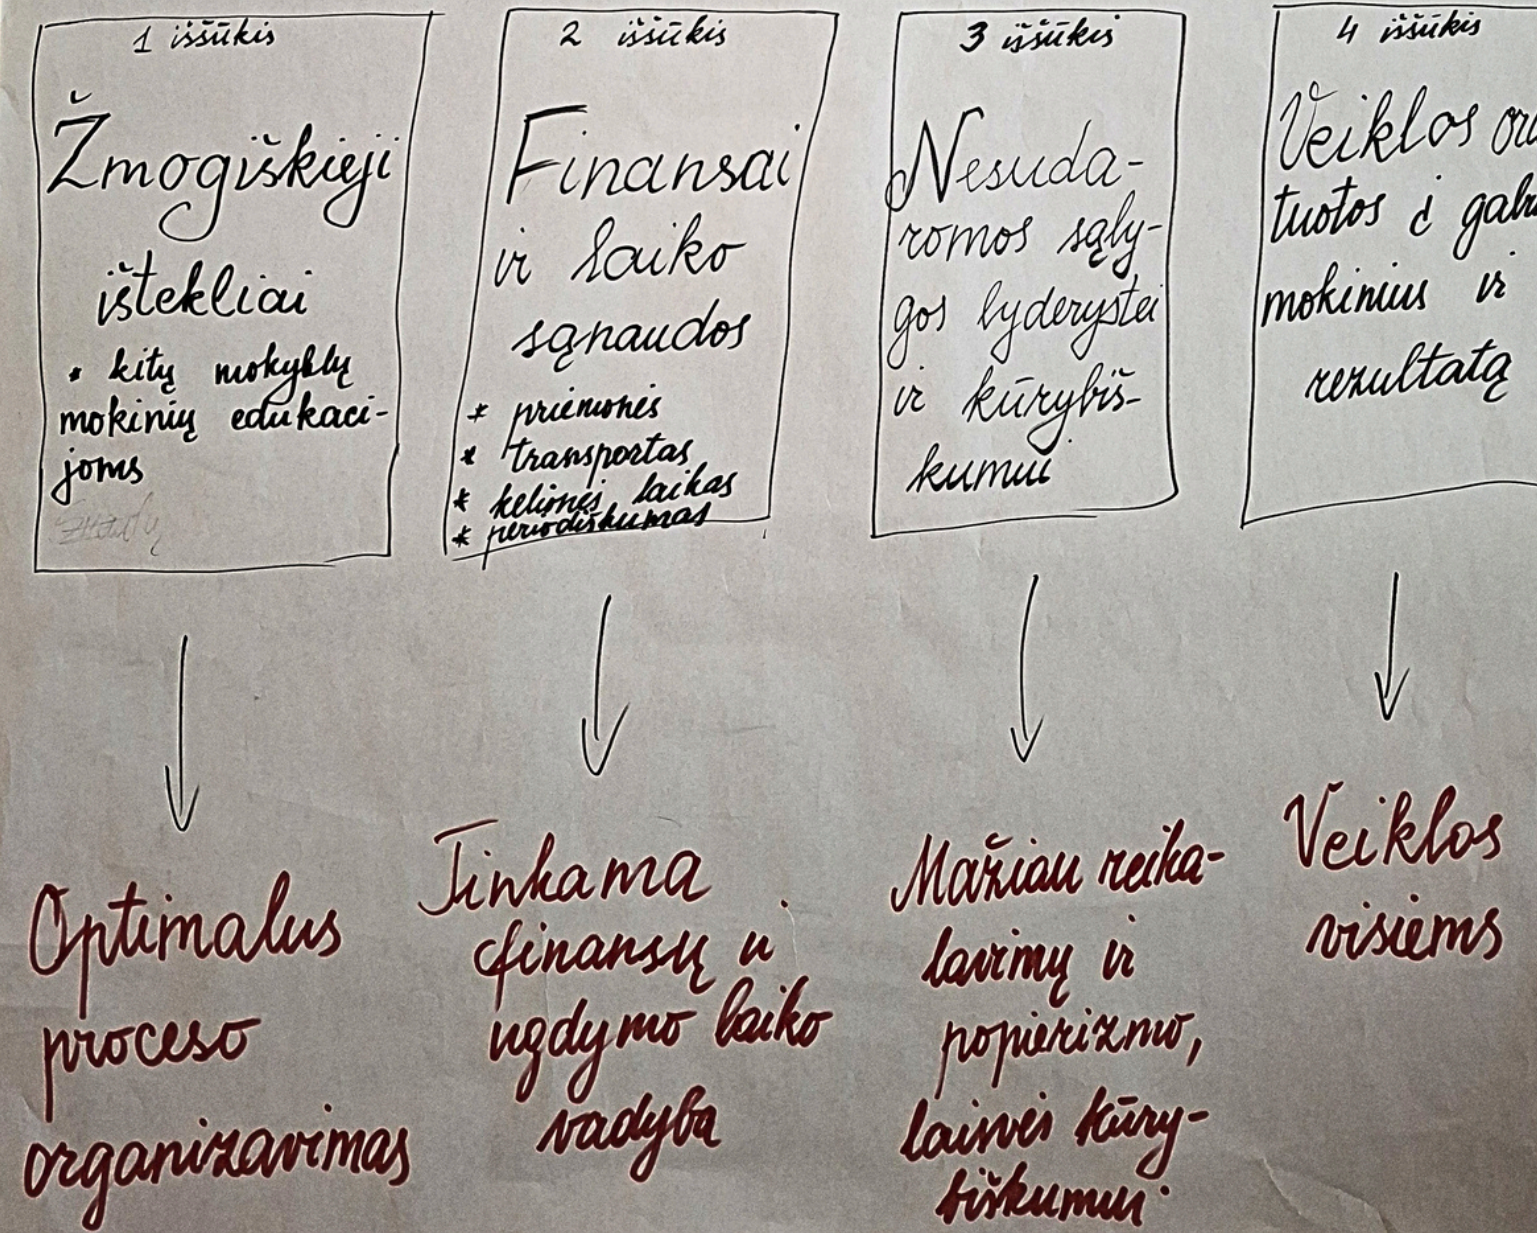 1 iššūkis
Žmogiškieji
ištekliai
* kitų mokyklų
mokinių edukaci-
joms
2 iššūkis
Finansai
ir laiko
sąnaudos
* priemonės
* transportas
* kelionės laikas
* periodiškumas
3 iššūkis
Nesuda-
romos sąly-
gos lyderystei
ir kūrybiš-
kumui
4 iššūkis
Veiklos
tuotos į
mokinius ir
rezultatą
Optimalus
proceso
organizavimas
Tinkama
finansų ir
ugdymo laiko
vadyba
Mažiau reika-
lavimų ir
popierizmo,
laisvės kūry-
biškumui
Veiklos
visiems